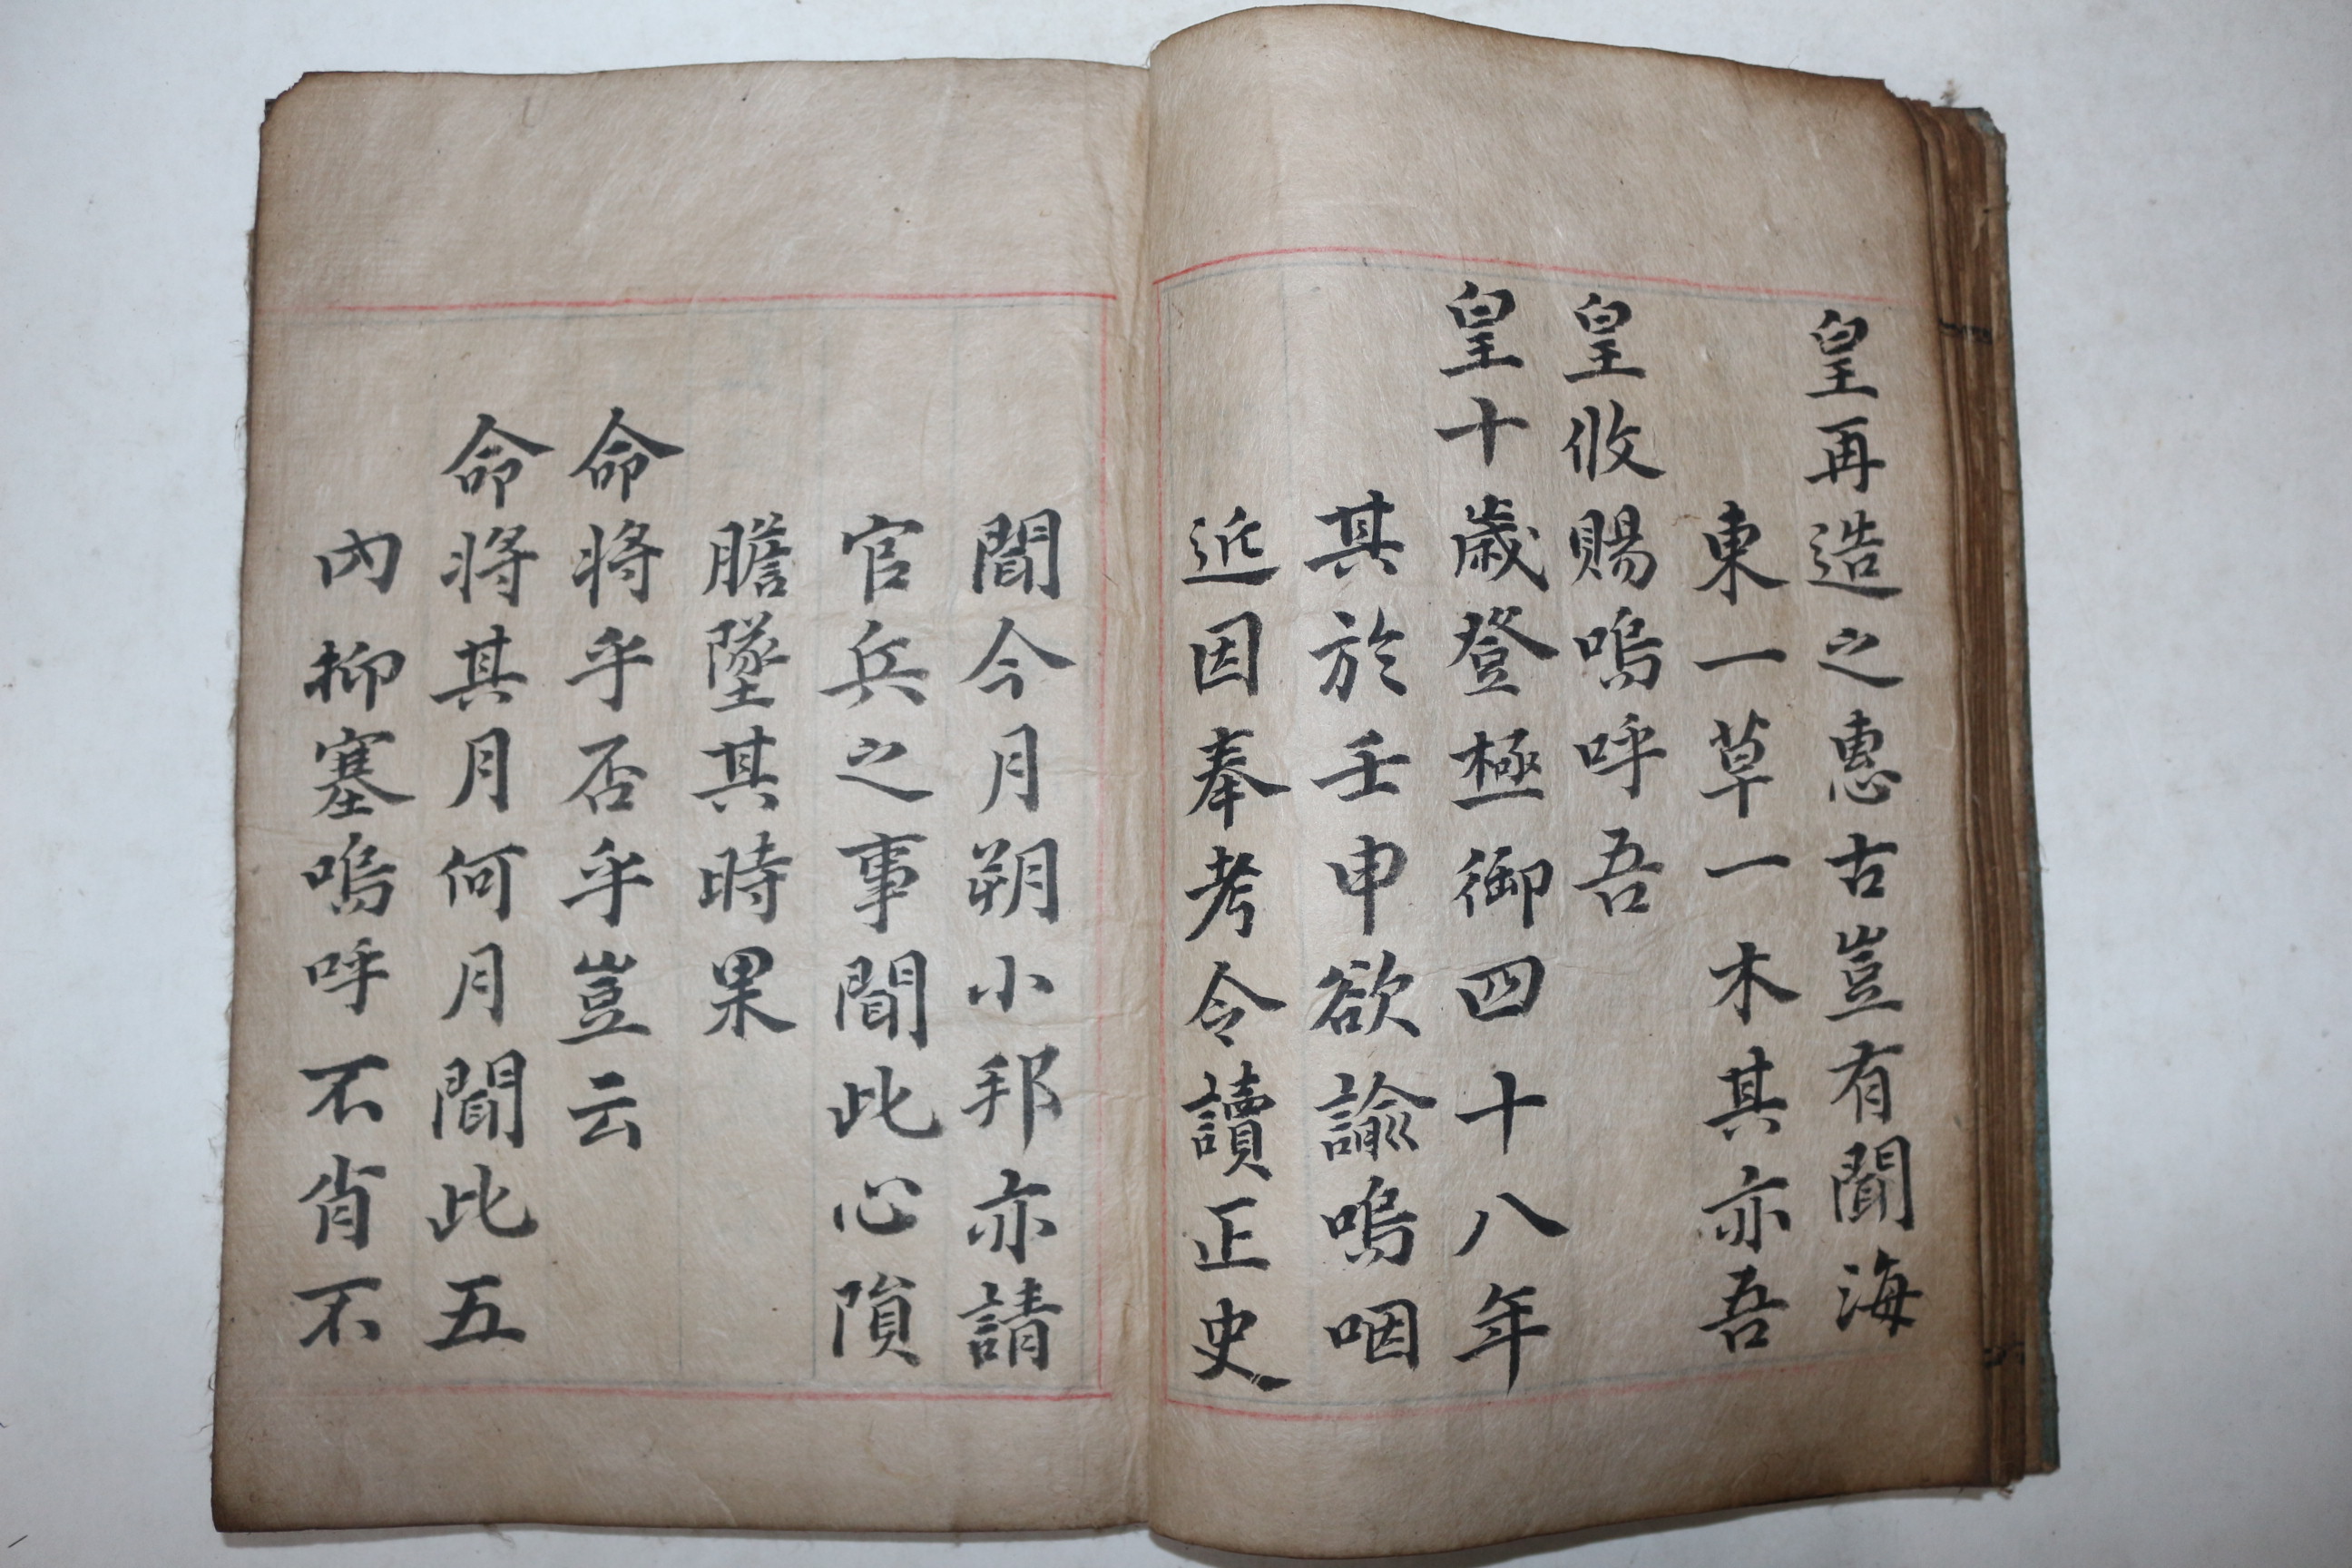 皇再造之惠古豈有聞海
東一草一木其亦吾
皇攸賜嗚呼吾
皇十歲登極御四十八年
其於壬申欲諭嗚咽
近因奉考令讀正史
聞今月朔小邦亦請
官兵之事聞此心隕
膽墜其時果
命將乎否乎豈云
命將其月何月聞此五
內抑塞嗚呼不肖不